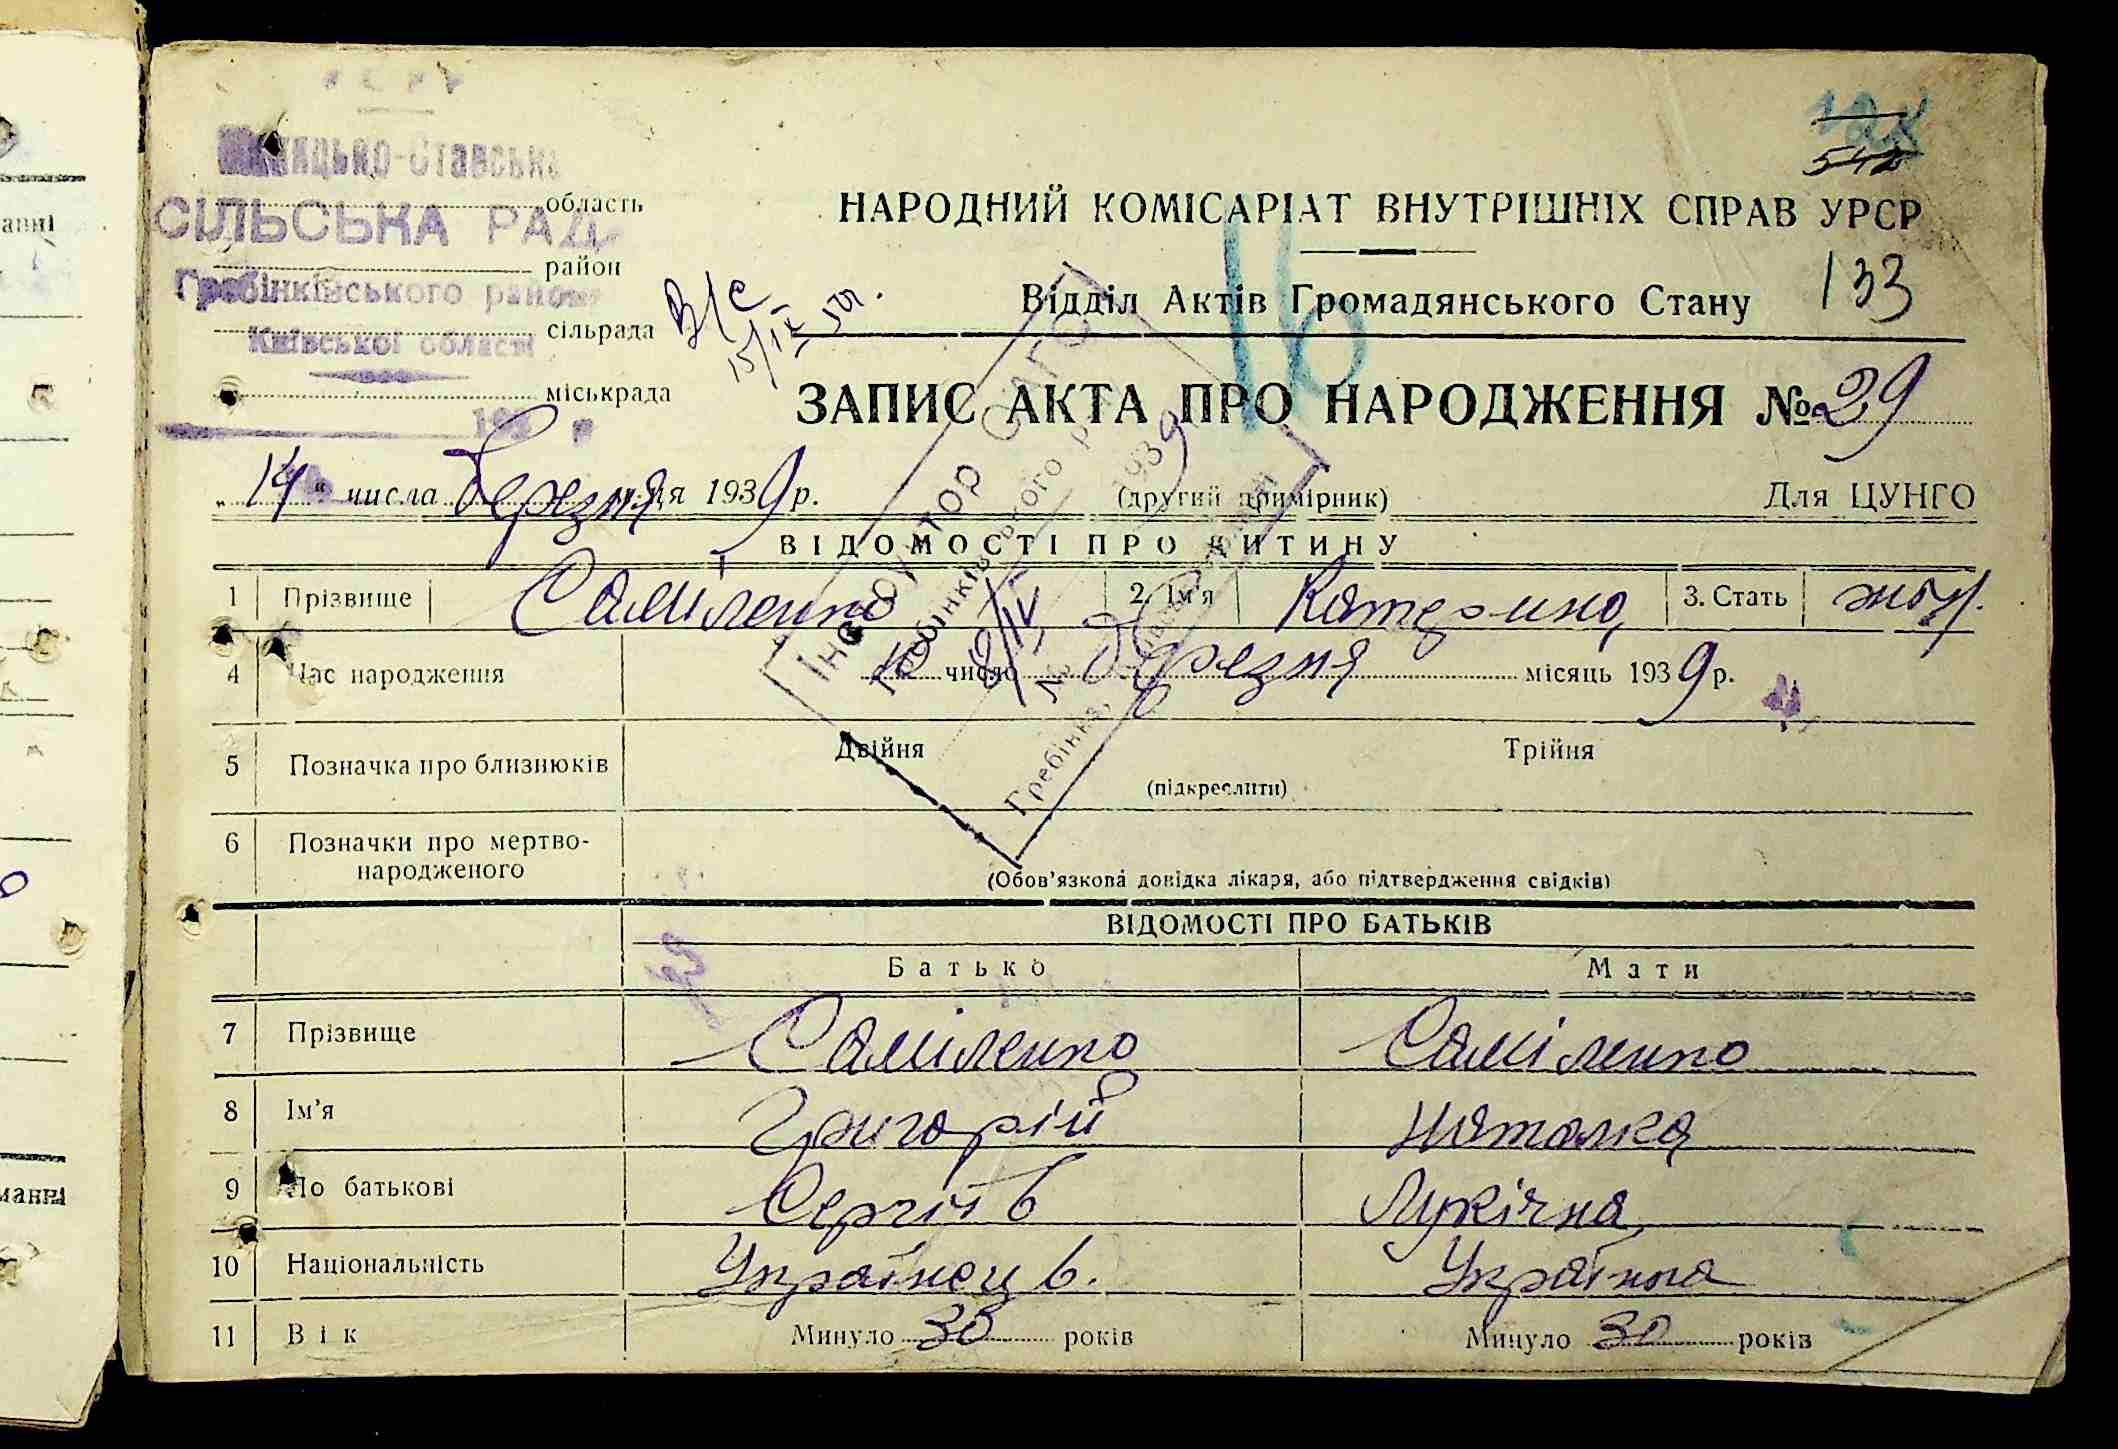 УСРР
область
СІЛЬСЬКА РАДА
район
Гребінківського району
сільрада
Київської області
міськрада
133
НАРОДНИЙ КОМІСАРІАТ ВНУТРІШНІХ СПРАВ УРСР
Відділ Актів Громадянського Стану
ЗАПИС АКТА ПРО НАРОДЖЕННЯ № 29
„14" числа березня м-ця 1939 р. (другий примірник) Для ЦУНГО
ВІДОМОСТІ ПРО ДИТИНУ
1 Прізвище Саміленко 2. Ім'я Катерина 3. Стать жін.
4 Час народження 10 число березня місяць 1939 р.
5 Позначка про близнюків Двійня Трійня
(підкреслити)
6 Позначки про мертво-
народженого
(Обов'язкова довідка лікаря, або підтвердження свідків)
ВІДОМОСТІ ПРО БАТЬКІВ
Батько Мати
7 Прізвище Саміленко Саміленко
8 Ім'я Григорій Наталка
9 По батькові Сергіїв Лукічна
10 Національність Українець Українка
11 Вік Минуло 30 років Минуло 30 років